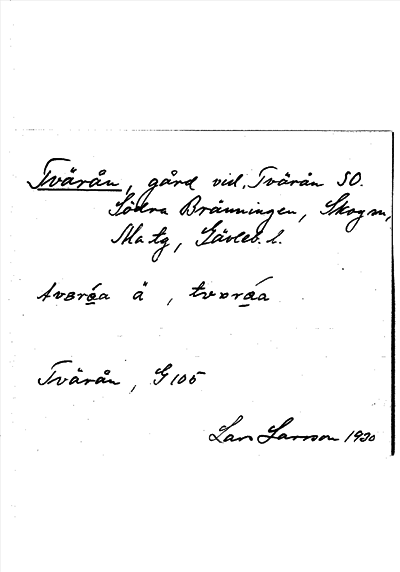 Tvärån, gård vid Tvärån SO.
Södra Bränningen, Skog sn,
Ma tg, Gävleb. l.
tværåa ä, tværåa
Tvärån, G 105
Lars Larsson 1930